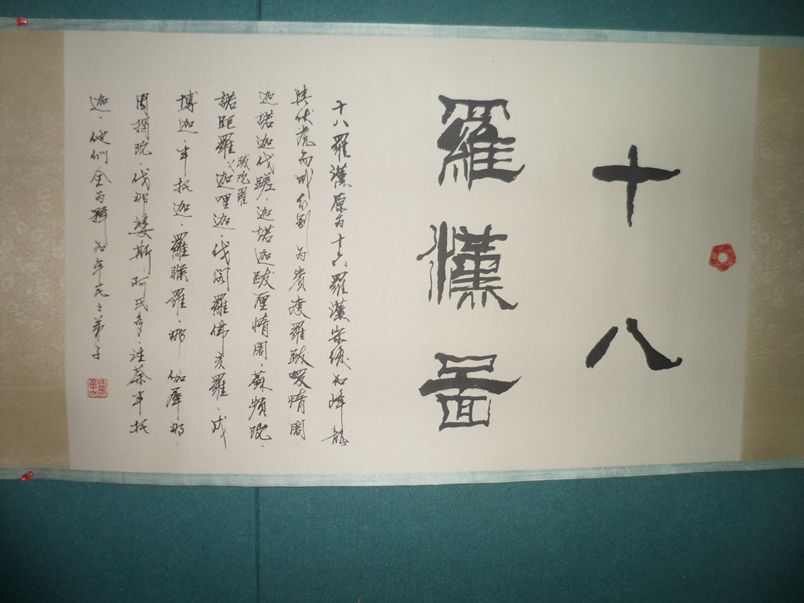 十八
羅漢啚
十八羅漢原為十六羅漢宋後加降龍
與伏虎而成分別為賓度羅跋啰惰闍·
迦諾迦伐蹉·迦諾迦跋厘惰闍·蘇頻陀·
諾距羅·跋陀羅·迦哩迦·伐闍羅佛多羅·戍
博迦·半托迦·羅睺羅·那伽犀那·
因揭陀·伐那婆斯·阿氏多·注荼半托
迦·他們全為釋加牟尼之弟子